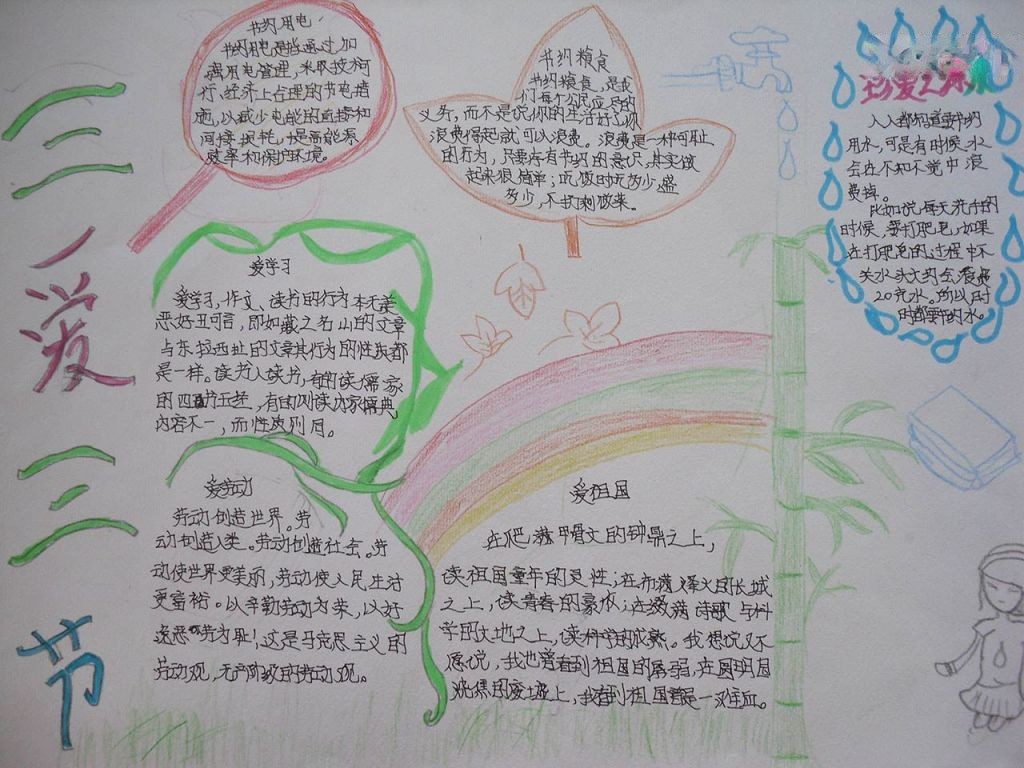 三爱三节
节约用电
节约用电是指通过加
强用电管理,采取技术可
行、经济上合理的节电措
施,以减少电能的直接和
间接损耗,提高能源
效率和保护环境。
节约粮食
节约粮食,是我
们每个公民应尽的
义务,而不是说你的生活好了,你
浪费得起就可以浪费。浪费是一种可耻
的行为,只要存有节约的意识,其实做
起来很简单:吃饭时吃多少盛
多少,不扔剩饭菜。
珍爱
人人都知道要节约
用水,可是有时候水
会在不知不觉中浪
费掉。
比如说,每天洗手的
时候,要打肥皂,如果
在打肥皂的过程中不
关水大约会浪费
20克水。所以时
时都要节约水。
爱学习
爱学习,作文、读书的行为本无美
恶好丑可言,即如藏之名山的文章
与东拉西扯的文章其行为的性质都
是一样。读书人读书,有的读儒家
的四书五经,有的则读佛家
内容不一,而性质则同。
爱劳动
劳动创造世界。劳
动创造人类。劳动创造社会。劳
动使世界更美丽,劳动使人民生活
更富裕。以辛勤劳动为荣,以好
逸恶劳为耻!这是马克思主义的
劳动观,无产阶级的劳动观。
爱祖国
在爬满甲骨文的钟鼎之上,
读祖国童年的灵性;在布满烽火的长城
之上,读青春的豪放;在缀满诗歌与科
学的大地之上,读祖国的成熟。我想说又不
愿说,我也曾看到祖国的孱弱,在圆明园
烧焦的废墟上,我看到祖国曾是一滩血。